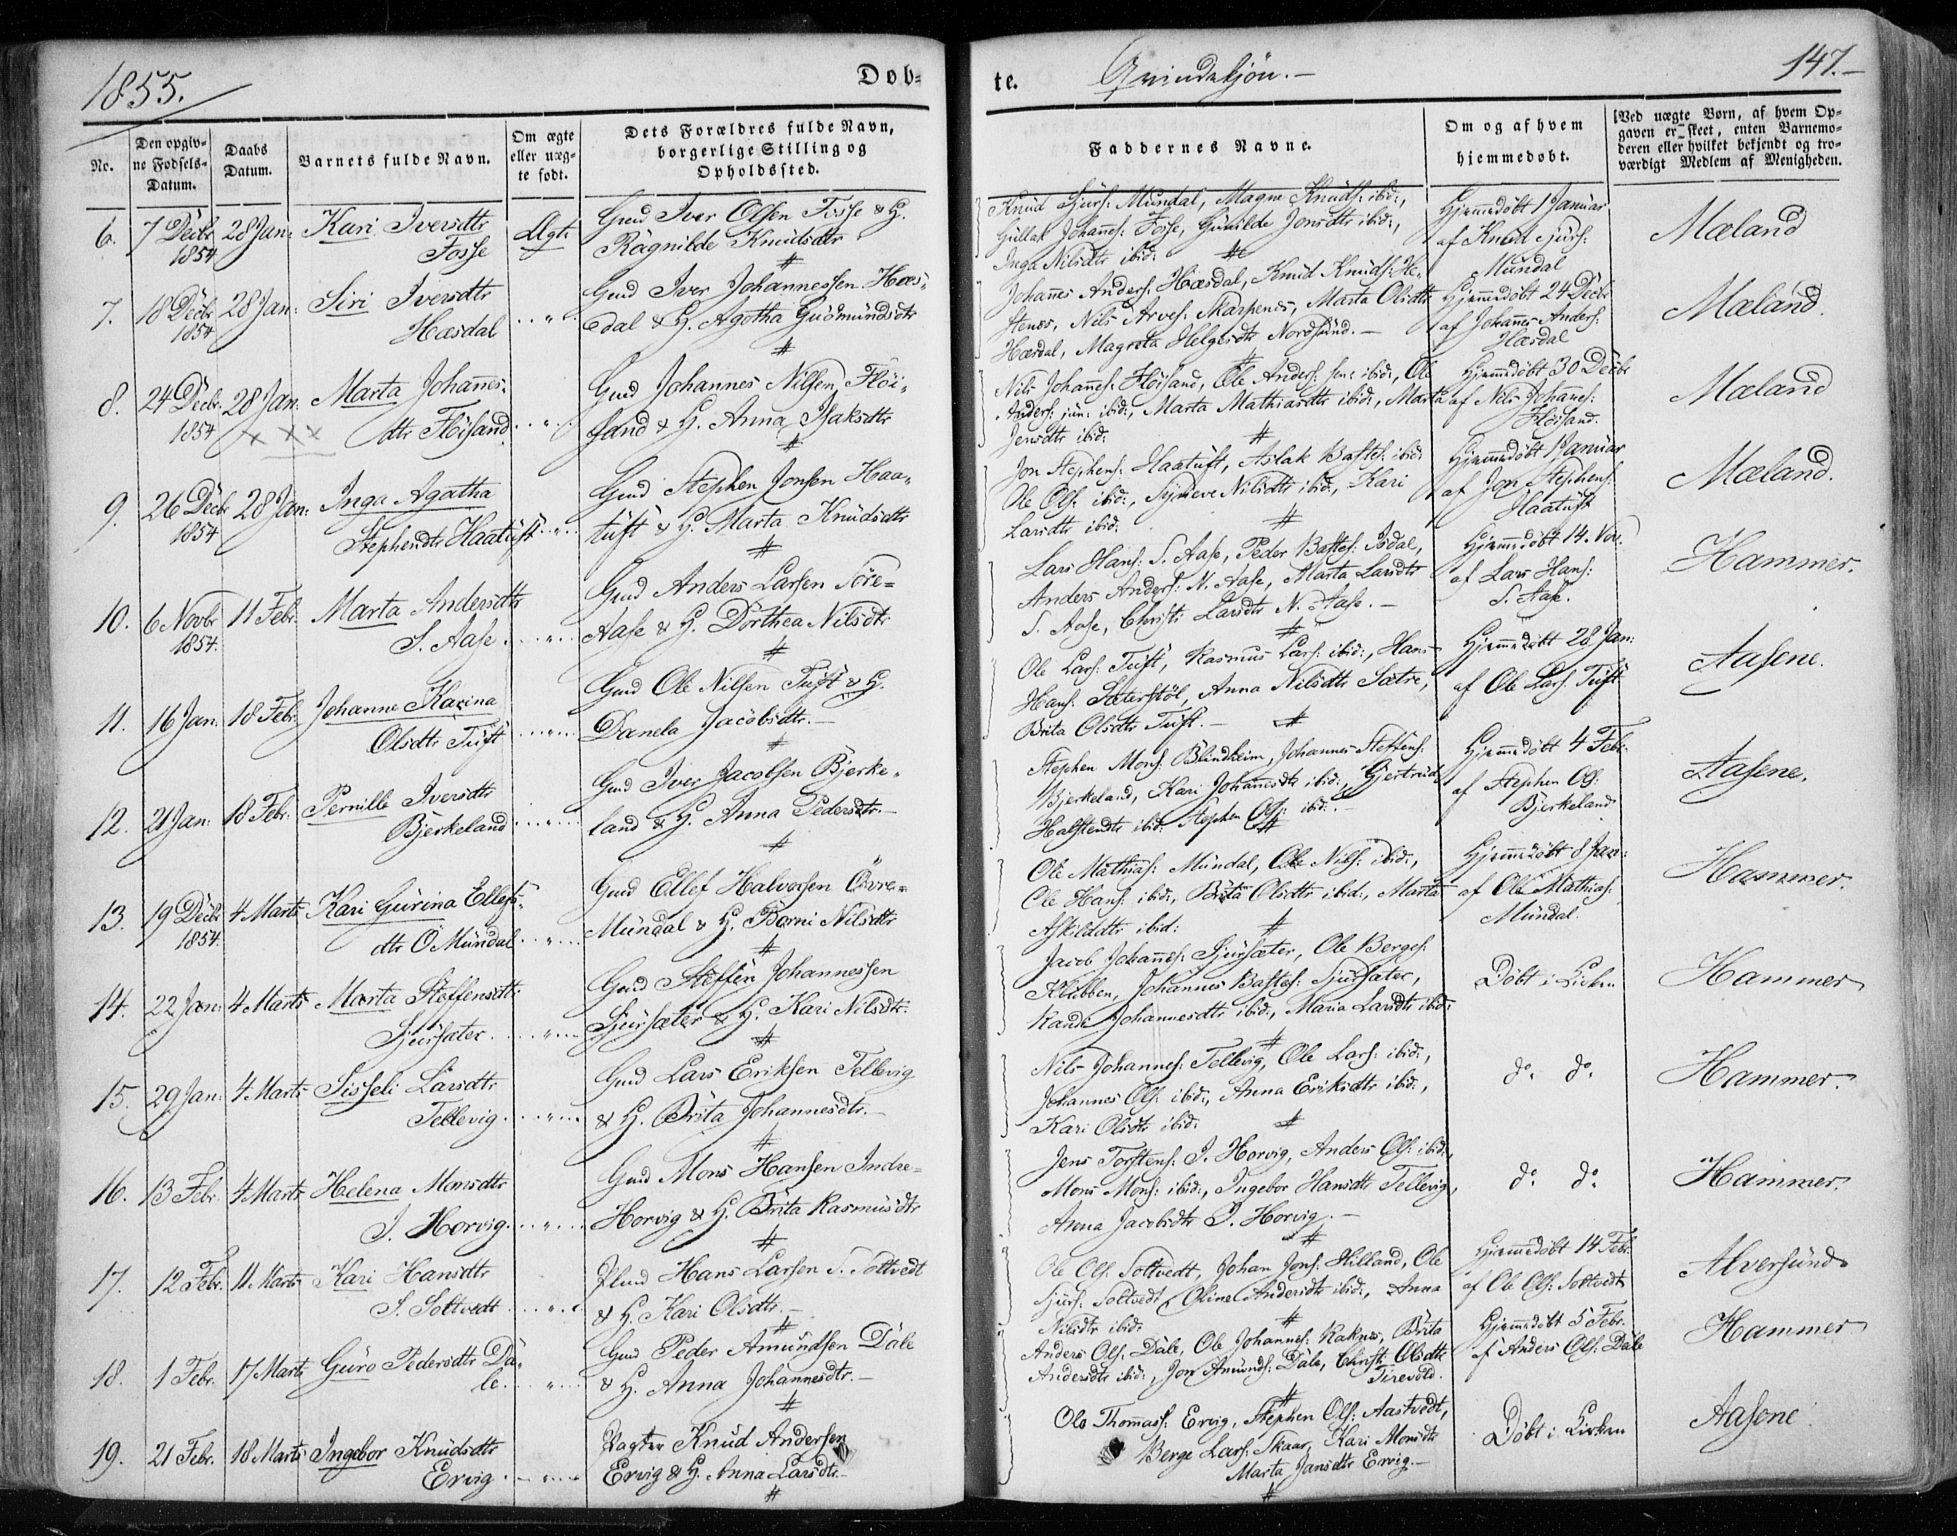 1855.
Døb-
te.
Qvindekjön.-
147.-
No.
Den opgiv-
ne Fødsels-
Datum.
Daabs
Datum.
Barnets fulde Navn.
Om ægte
eller uæg-
te født.
Dets Forældres fulde Navn,
borgerlige Stilling og
Opholdssted.
Faddernes Navne.
Om og af hvem
hjemmedøbt.
Ved uægte Børn, af hvem Op-
gaven er skeet, enten Barnemo-
deren eller hvilket bekjendt og tro-
værdigt Medlem af Menigheden.
6. 7 Decbr 1854 28 Jan: Kari Iversdtr
Fosse
Ægte
Gmd Iver Olsen Fosse & H.
Ragnilde Knudsdtr
Knud Sjurs: Mundal, Magne Knuds: ibid:,
Gullak Johanes: Fosse, Gunilde Jonsdtr ibid:,
Inga Nilsdtr ibid:
Hjemmedöbt 1 Januar
af Knud Sjurs:
Mundal
Mæland
7. 18 Decbr 1854 28 Jan: Siri Iversdtr
Hæsdal
Gmd Iver Johannessen Hæs-
dal & H. Agotha Gudmundsdtr
Johanes Anders: Hæsdal, Knud Knuds: He-
stenes, Nils Arves: Skarpenes, Marta Olsdtr
Hæsdal, Magreta Helgesdtr Nordsund.-
Hjemmedöbt 24 Decbr
af Johannes Anders:
Hæsdal
Mæland.
8. 24 Decbr. 1854 28 Jan: Marta Johanes-
dtr Flöisand
Gmd Johannes Nilsen Flöi-
sand & H. Anna Isaksdtr
Nils Johanes: Flöisand, Ole Anders: sen: ibid:, Ole
Anders: jun: ibid:, Marta Mathiasdtr ibid:, Marta
Jensdtr ibid:
Hjemmedöbt 30 Decbr
af Nils Johanes:
Flöisand.
Mæland
9. 26 Decbr 1854 28 Jan: Inga Agatha
Stephensdtr Haatuft
Gmd Stephen Jonsen Haa-
tuft & H. Marta Knudsdtr
Jon Stephens: Haatuft, Aslak Bastes: ibid:
Ole Ols: ibid:, Synneve Nilsdtr ibid:, Kari
Larsdtr ibid:
Hjemmedöbt 1 Januar
af Jon Stephens:
Haatuft
Mæland.
10. 6 Novbr 1854. 11 Febr. Marta Andersdtr
S. Aase
Gmd Anders Larsen Söre-
Aase & H. Dorthea Nilsdtr
Lars Hans: S. Aase, Peder Bastes: Isdal,
Anders Anders: N. Aase, Marta Larsdtr
S. Aase, Christi Larsdtr N. Aase.-
Hjemmedöbt 14 Nov:
af Lars Hans:
S. Aase.
Hammer.
11. 16 Jan. 18 Febr. Johanne Karina
Olsdtr Tuft
Gmd Ole Nilsen Tuft & H.
Danela Jacobsdtr.-
Ole Lars: Tuft, Rasmus Lars: ibid:, Hans
Hans: Sæterstöl, Anna Nilsdtr Sætre,
Brita Olsdtr Tuft.-
Hjemmedöbt 28 Jan:
af Ole Lars: Tuft
Aasene.
12. 21 Jan: 18 Febr. Pernille Iversdtr
Bjerkeland
Gmd Iver Jacobsen Bjerke-
land & H. Anna Pedersdtr.-
Stephen Mons: Blindheim, Johannes Steffens:
Bjerkeland, Kari Johanesdtr ibid:, Gjertrud
Halstendtr ibid: Stephen Ols: ibid:-
Hjemmedöbt 4 Febr.
af Stephen Ols:
Bjerkeland
Aasene.
13. 19 Decbr 1854. 4 Marts Kari Gurina Ellefs-
dtr Ö Mundal
Gmd Ellef Halvorsen Övre-
Mundal & H. Borni Nilsdtr
Ole Mathias: Mundal, Ole Nils: ibid:,
Ole Hans: ibid:, Brita Olsdtr ibid:, Marta
Askilddtr ibid:
Hjemmedöbt 8 Jan:
af Ole Mathias:
Mundal.
Hammer.
14. 22 Jan: 4 Marts Marta Steffensdtr
Sjursæter
Gmd Steffen Johannessen
Sjursæter & H. Kari Nilsdtr.
Jacob Johanes: Sjursæter, Ole Berges:
Klubben, Johannes Bastes: Sjursæter,
Randi Johannesdtr ibid:, Maria Larsdtr ibid:
Döbt i Kirken
Hammer
15. 29 Jan: 4 Marts Sisseli Larsdtr
Tellevig
Gmd Lars Eriksen Tellevig
& H. Brita Johannesdtr.-
Nils Johannes: Tellevig, Ole Lars: ibid:,
Johannes Ols: ibid:, Anna Eriksdtr ibid:,
Kari Olsdtr ibid:
do. do.
Hammer.
16. 13 Febr. 4 Marts Helena Monsdtr
I. Horvig
Gmd Mons Hansen Indre-
Horvig & H. Brita Rasmusdtr
Jens Torstens: I. Horvig, Anders Ols: ibid:,
Mons Mons: ibid:, Ingebor Hansdtr Tellevig,
Anna Jacobsdtr I. Horvig.-
do. do.
Hammer.
17. 12 Febr. 11 Marts Kari Hansdtr
S. Soltvedt
Hans Larsen S. Soltvedt
& H. Kari Olsdtr.-
Ole Ols: Soltvedt, Johan Jons: Hilland, Ole
Sjurs: Soltvedt, Oline Andersdtr ibid:, Anna
Nilsdtr ibid:
Hjemmedöbt 14 Febr.
af Ole Ols: Soltvedt
Alversund
18. 1 Febr. 17 Marts Guro Pedersdtr Da-
le
Gmd Peder Amundsen Dale
& H. Anna Johannesdtr.-
Anders Ols: Dale, Ole Johannes: Raknes, Brita
Andersdtr ibid:, Jon Amunds: Dale, Christi Olsdtr
Hjemmedöbt 5 Febr.
af Anders Ols: Dale
Hammer
19. 21 Febr. 18 Marts Ingebor Knudsdtr
Ervig
Pagter Knud Andersen
Ervig & H. Anna Larsdtr.-
Ole Thomas: Ervig, Stephen Ols: Aastvedt,
Berge Lars: Skaar, Kari Monsdtr
Marta Jansdtr Ervig.-
Döbt i Kirken
Aasene